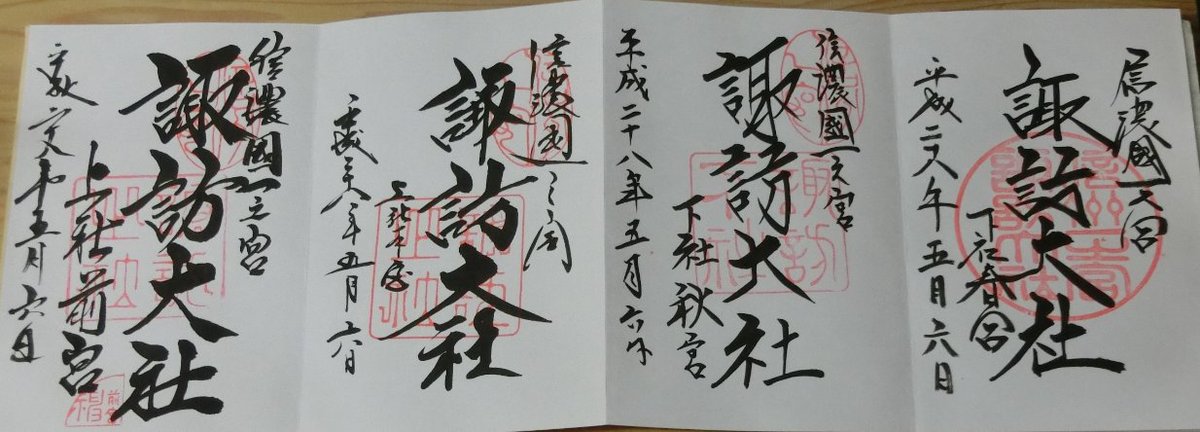 信濃國一之宮
諏訪大社
下社春宮
平成二十八年五月六日
信濃國一之宮
諏訪大社
下社秋宮
平成二十八年五月六日
信濃國一之宮
諏訪大社
上社本宮
平成二十八年五月六日
信濃國一之宮
諏訪大社
上社前宮
五月六日